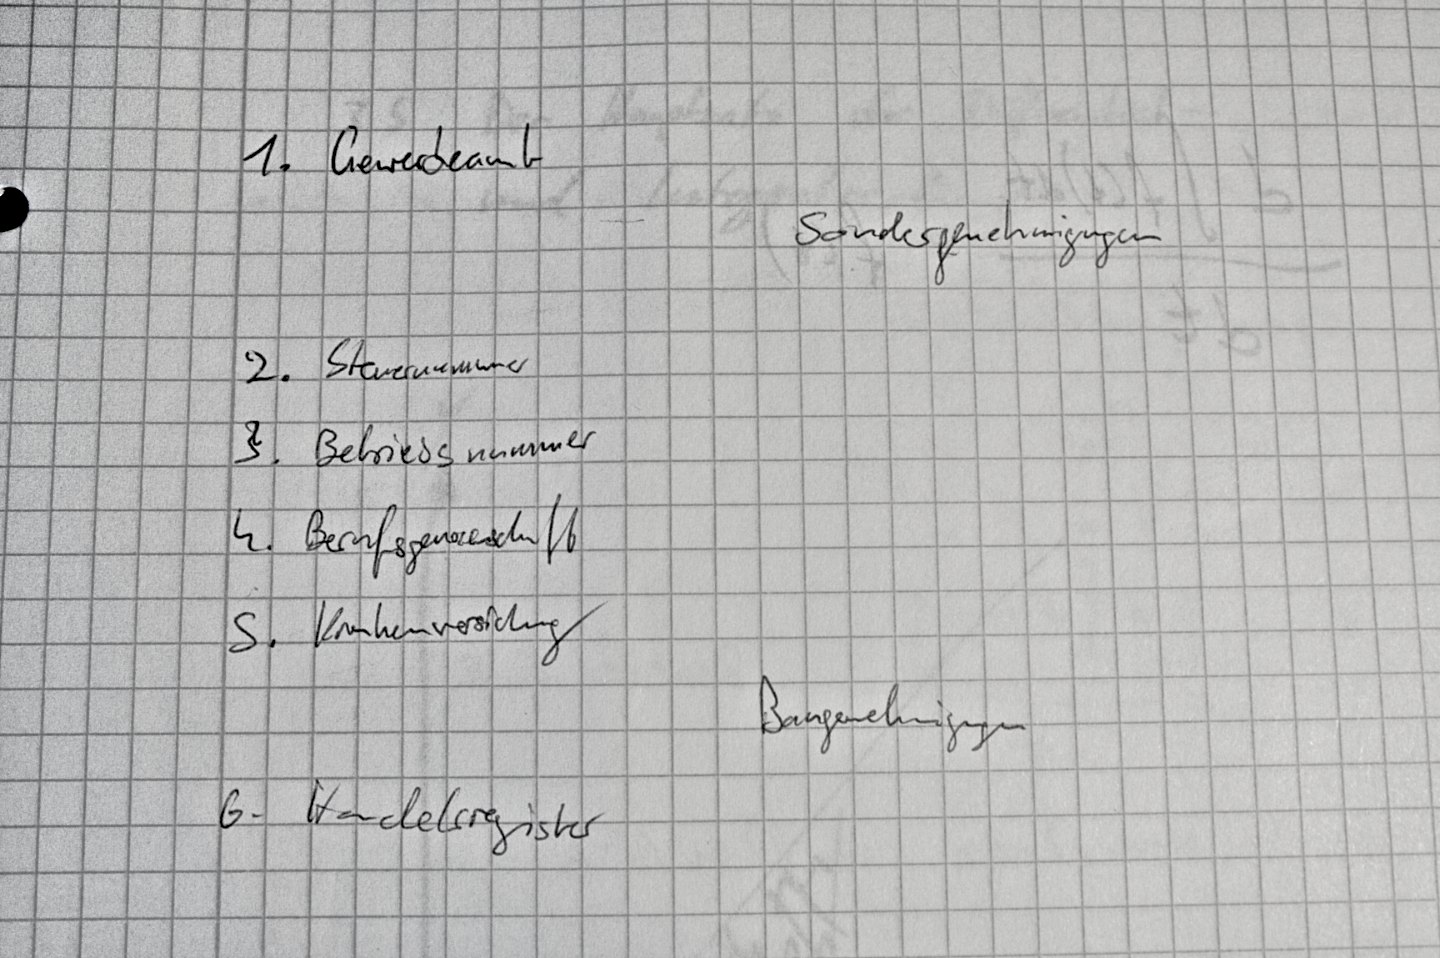 1. Gewerbeamt
Sondergenehmigungen
2. Steuernummer
3. Betriebsnummer
4. Berufsgenossenschaft
5. Krankenversicherung
Baugenehmigungen
6. Handelsregister